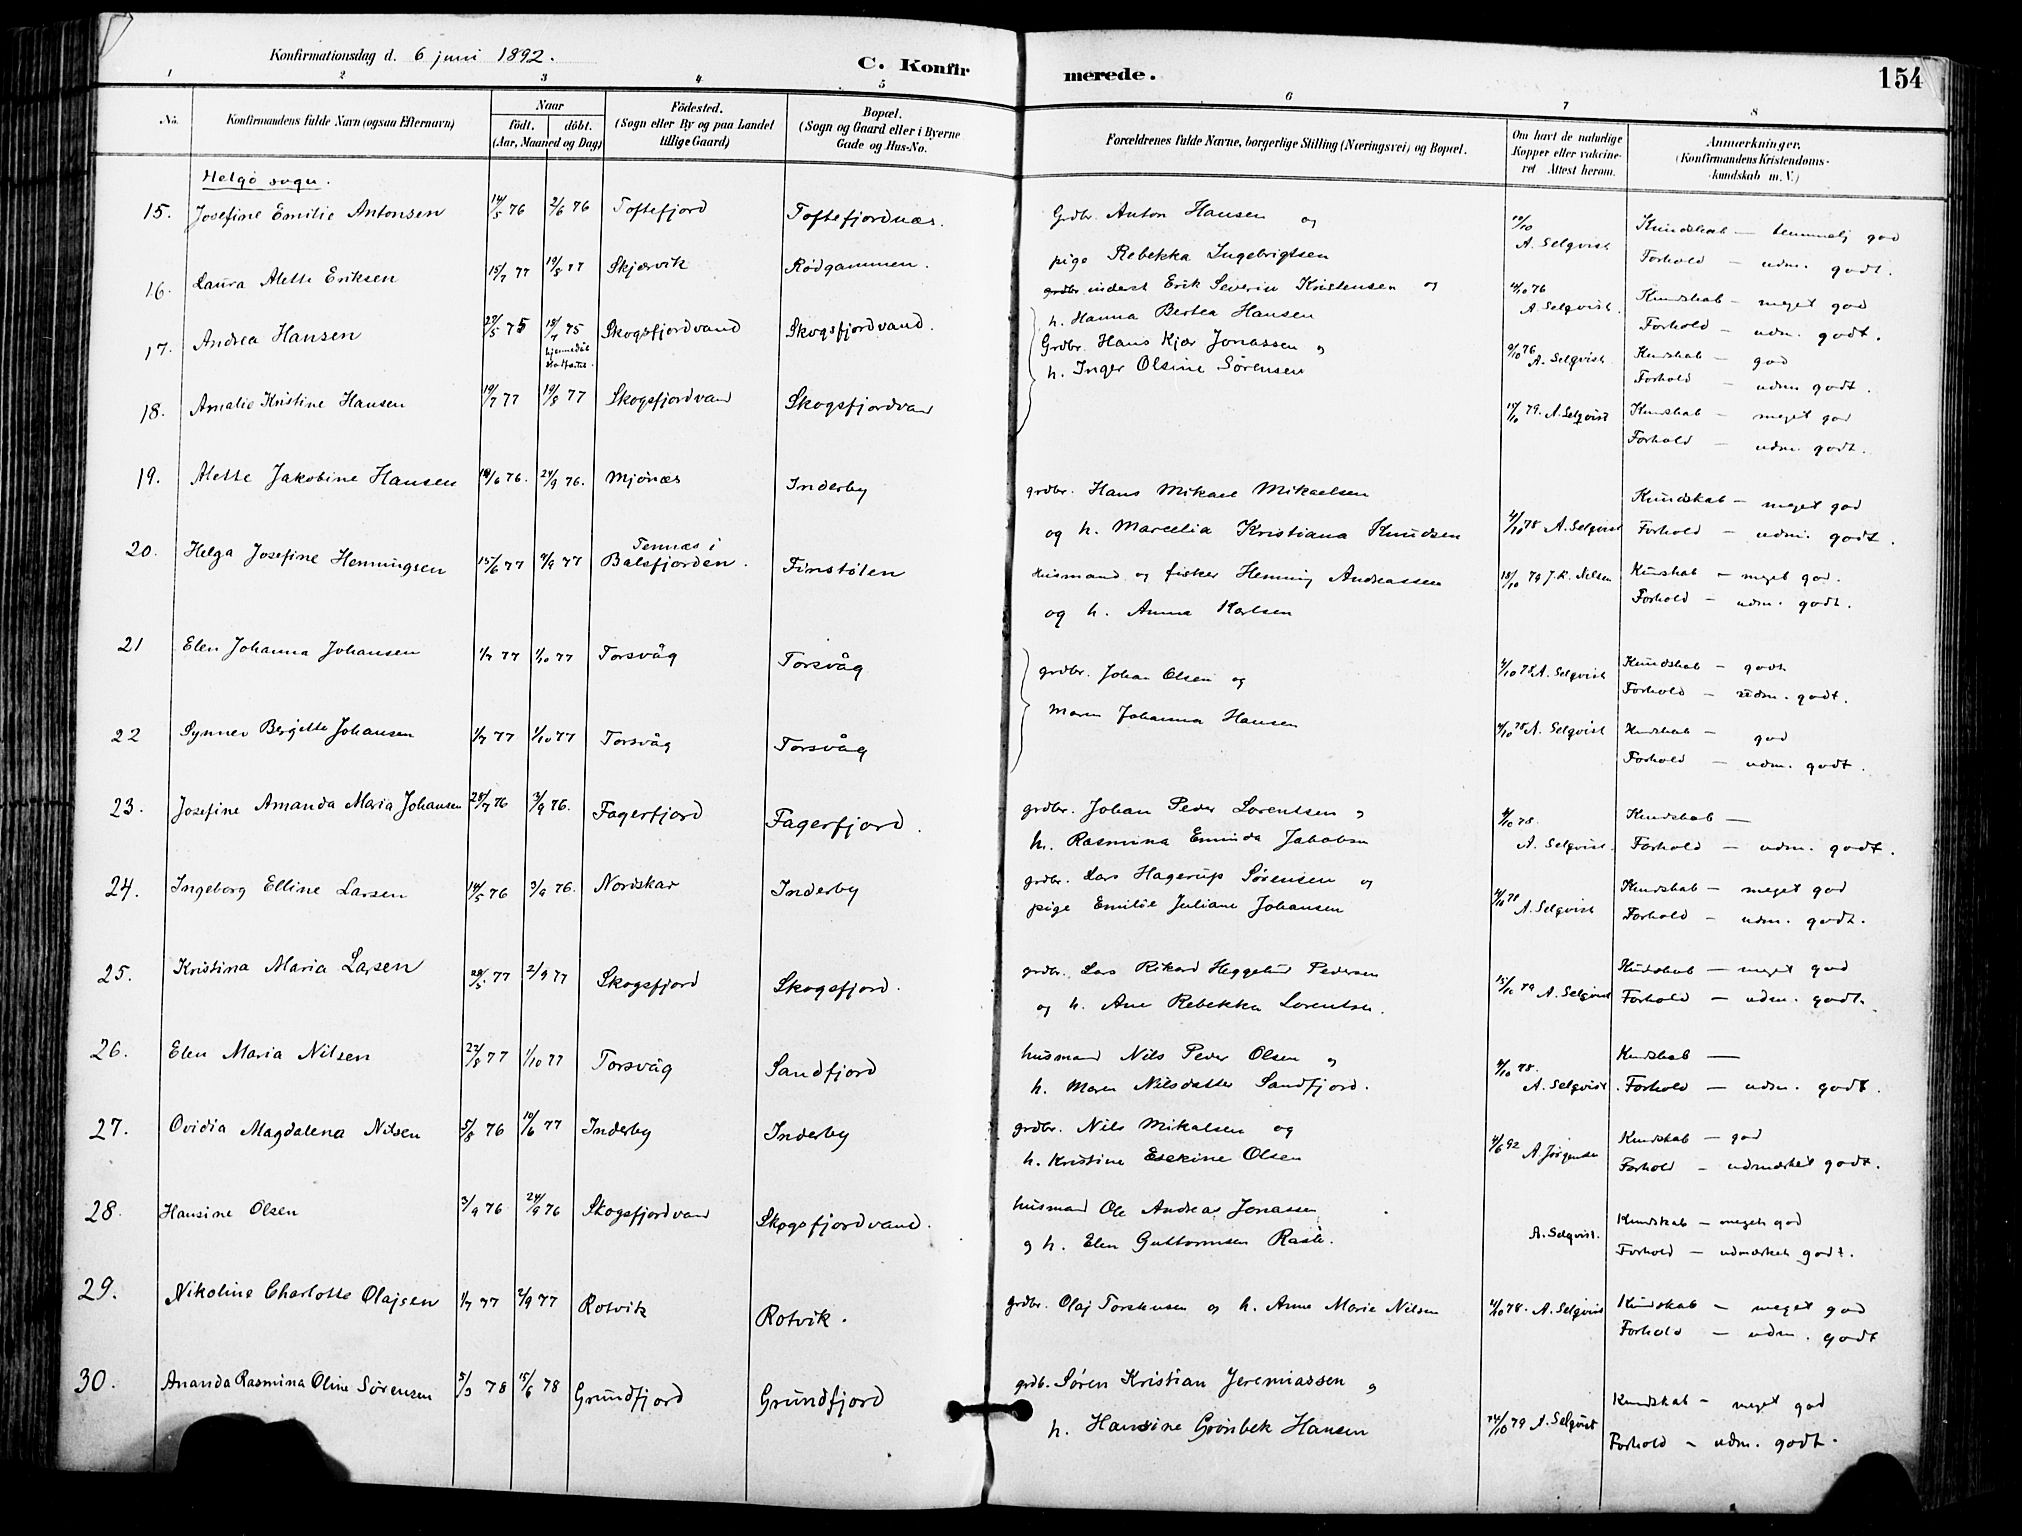 Konfirmationsdag d. 6 juni 1892.
C. Konfir merede.
154
1 2 3 4 5 6 7 8
No.
Konfirmandens fulde Navn (ogsaa Efternavn)
Naar
født. døbt.
(Aar, Maaned og Dag)
Födested.
(Sogn eller By og paa Landet
tillige Gaard)
Bopæl.
(Sogn og Gaard eller i Byerne
Gade og Hus-No.
Forældrenes fulde Navne, borgerlige Stilling (Næringsvei) og Bopæl.
Om havt de naturlige
Kopper eller vakcine-
ret Attest herom.
Anmærkninger.
(Konfirmandens Kristendoms-
kundskab m. V.)
Helgø sogn.
15. Josefine Emilie Antonsen 14/5 76 2/6 76 Toftefjord Toftefjordnæs. Grdbr. Anton Hansen og 10/10 Kundskab – temmelig god
pige Rebekka Ingebrigtsen A. Selqvist Forhold – udm. godt.
16. Laura Alette Eriksen 15/7 77 19/8 77 Skjærvik Rødgammen. inderst Erik Severin Kristensen og 76 Kundskab – meget god
h. Hanna Bertea Hansen A. Selqvist. Forhold – udm. godt.
17. Andrea Hansen 27/5 75 18/7 75 Skogsfjordvand Skogsfjordvand. Grdbr. Hans Kjær Jonassen og 9/10 76 A. Selqvist. Kundskab – god
hjemmedøbt
h. Inger Olsine Sørensen Forhold – udm godt.
18. Amalie Kristine Hansen 19/7 77 19/8 77 Skogsfjordvand Skogsfjordvand 15/10 79. A. Selqvist Kundskab – meget god
Forhold – udm. godt.
19. Alette Jakobine Hansen 18/6 76. 24/9 76. Mjönæs Inderby grdbr. Hans Mikael Mikaelsen Kundskab – meget god
og h. Marcelia Kristiana Knudsen 4/10 78 A. Selqvist Forhold – udm. godt.
20. Helga Josefine Henningsen 15/6 77 9/9 77 Tennæs i
Balsfjorden. Finstølen Husmand og fisker Henning Andreassen 15/10 79 J. R. Nilsen Kundskab – meget god.
og h. Anna Karlsen Forhold – udm. godt.
21 Elen Johanna Johansen 1/7 77 1/10 77 Torsvåg Torsvåg grdbr. Johan Olsen og 4/10 78 A. Selqvist Kundskab – godt
Forhold – udm. godt.
22 Synnev Bergitte Johansen 1/7 77 1/10 77 Torsvåg Torsvåg Maren Johanna Hansen 4/10 78 A. Selqvist Kundskab – god
Forhold – udm. godt.
23. Josefine Amanda Maria Johansen 28/7 76 3/9 76. Fagerfjord Fagerfjord. grdbr. Johan Peder Lorentsen og 4/10 78. Kundskab –
h. Rasmina Eminda Jakobsen A. Selqvist. Forhold – udm. godt.
24. Ingeborg Elline Larsen 14/5 76 3/9 76. Nordskar Inderby grdbr. Lars Hagerup Sørensen og 4/10 78 Kundskab – meget god
pige Emilie Juliane Johansen A. Selqvist Forhold – udm. godt.
25. Kristina Maria Larsen 29/5 77 2/9 77 Skogsfjord Skogsfjord. grdbr. Lars Rikard Heggelund Pedersen 15/10 79 A. Selqvist Kundskab – meget god
og h. Ane Rebekka Lorentsen. Forhold – udm. godt.
26. Elen Maria Nilsen 22/8 77 1/10 77 Torsvåg Sandfjord husmand Nils Peder Olsen og 4/10 78. Kundskab –
h. Maren Nilsdatter Sandfjord. A. Selqvist. Forhold – udm. godt.
27. Ovidia Magdalena Nilsen 5/8 76 10/6 77 Inderby Inderby grdbr. Nils Mikalsen og 4/6 92 A Jörgensen Kundskab – god
h. Kristine Eserine Olsen Forhold – udmærket godt.
28. Hansine Olsen 3/9 76 24/9 76 Skogsfjordvand Skogsfjordvand. husmand Ole Andreas Jonassen Kundskab – meget god
og h. Elen Guttormsen Raste. A. Selqvist. Forhold – udmærket godt.
29. Nikoline Charlotte Olajsen 1/7 77 2/9 77 Rotvik Rotvik. grdbr. Olaj Torstensen og h. Anne Marie Nilsen 4/10 78. A. Selqvist Kundskab – meget god
Forhold – udm. godt
30. Ananda Rasmina Oline Sørensen 5/3 78 15/6 78 Grundfjord Grundfjord grdb. Søren Kristian Jeremiassen og Kundskab – meget god
h. Hansine Grönbek Hansen 14/10 79 A. Selqvist Forhold – udm. godt.